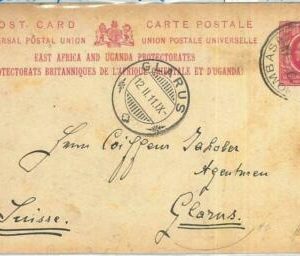 POST CARD CARTE POSTALE
UNIVERSAL POSTAL UNION UNION POSTALE UNIVERSELLE
EAST AFRICA AND UGANDA PROTECTORATES
PROTECTORATS BRITANNIQUES DE L'AFRIQUE ORIENTALE ET D'UGANDA
OMBAS
GLARUS
12.II.11.IX-
Herrn Coiffeur Jakober
Agenturen
Suisse. Glarus.